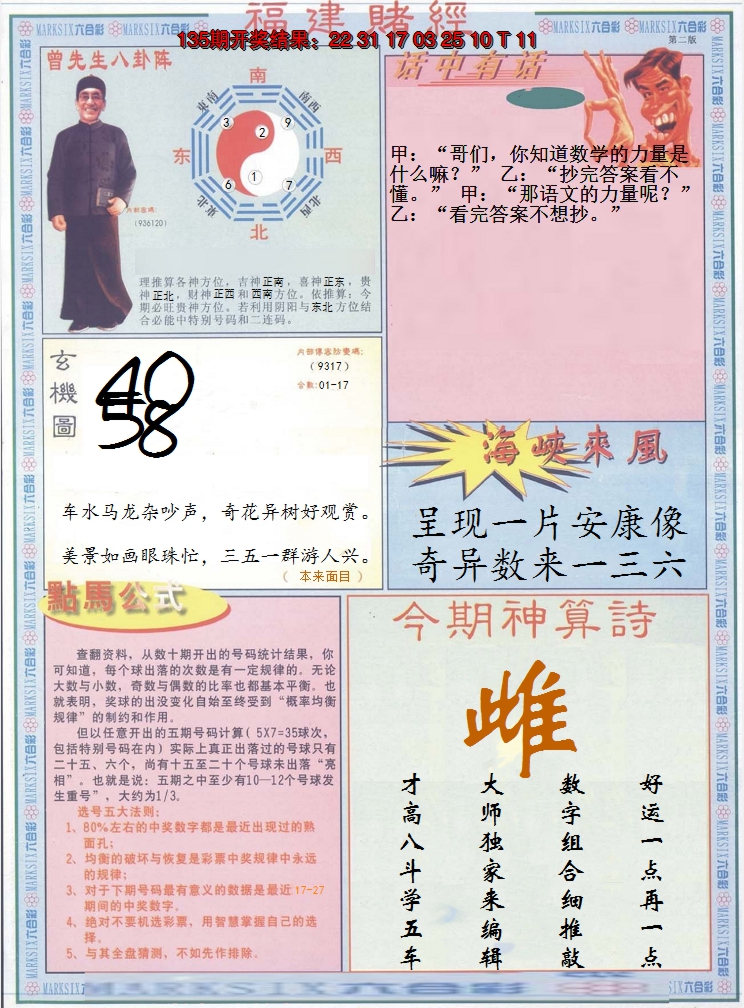 福建賭經
135期开奖结果：22 31 17 03 25 10 T 11
MARKSIX六合彩
第二版
曾先生八卦阵
南
東南
南西
3
9
2
东
西
1
6
7
東北
北西
北
內部密碼:
(936120)
理推算各神方位，吉神正南，喜神正东，贵
神正北，财神正西和西南方位。依推算：今
期必旺贵神方位。若利用阴阳与东北方位结
合必能中特别号码和二连码。
话中有话
甲：“哥们，你知道数学的力量是
什么嘛？” 乙：“抄完答案看不
懂。” 甲：“那语文的力量呢？”
乙：“看完答案不想抄。”
玄機圖
(9317)
合数:01-17
车水马龙杂吵声，奇花异树好观赏。
美景如画眼珠忙，三五一群游人兴。
（ 本来面目 ）
海峽來風
呈现一片安康像
奇异数来一三六
點馬公式
查翻资料，从数十期开出的号码统计结果，你
可知道，每个球出落的次数是有一定规律的。无论
大数与小数，奇数与偶数的比率也都基本平衡。也
就表明，奖球的出没变化自始至终受到“概率均衡
规律”的制约和作用。
但以任意开出的五期号码计算( 5X7=35球次，
包括特别号码在内) 实际上真正出落过的号球只有
二十五、六个，尚有十五至二十个号球未出落“亮
相”。也就是说：五期之中至少有10—12个号球发
生重号”，大约为1/3。
选号五大法则：
1、80%左右的中奖数字都是最近出现过的熟
面孔；
2、均衡的破坏与恢复是彩票中奖规律中永远
的规律；
3、对于下期号码最有意义的数据是最近17-27
期间的中奖数字。
4、绝对不要机选彩票，用智慧掌握自己的选
择。
5、与其全盘猜测，不如先作排除。
今期神算詩
雌
好运一点再一点
数字组合细推敲
大师独家来编辑
才高八斗学五车